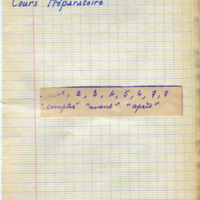 Cours Préparatoire
1, 2, 3, 4, 5, 6, 7, 8
"compter" "avant" "après"